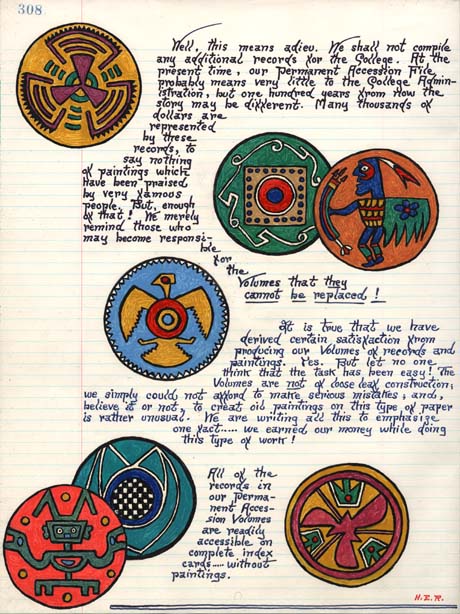 308.
Well, this means adieu. We shall not compile
any additional records for the College. At the
present time, our Permanent Accession File
probably means very little to the College Admin-
istration, but one hundred years from now the
story may be different. Many thousands of
dollars are
represented
by these
records, to
say nothing
of paintings which
have been praised
by very famous
people. But, enough
of that! We merely
remind those who
may become responsi-
ble
for
the
Volumes that they
cannot be replaced!
It is true that we have
derived certain satisfaction from
producing our Volumes of records and
paintings. Yes. But let no one
think that the task has been easy! The
Volumes are not of loose leaf construction;
we simply could not afford to make serious mistakes; and,
believe it or not, to creat oil paintings on this type of paper
is rather unusual. We are writing all this to emphasise
one fact..... we earned our money while doing
this type of work!
All of the
records in
our Perma-
nent Acces-
sion Volumes
are readily
accessible on
complete index
cards..... without
paintings.
H.E.R.